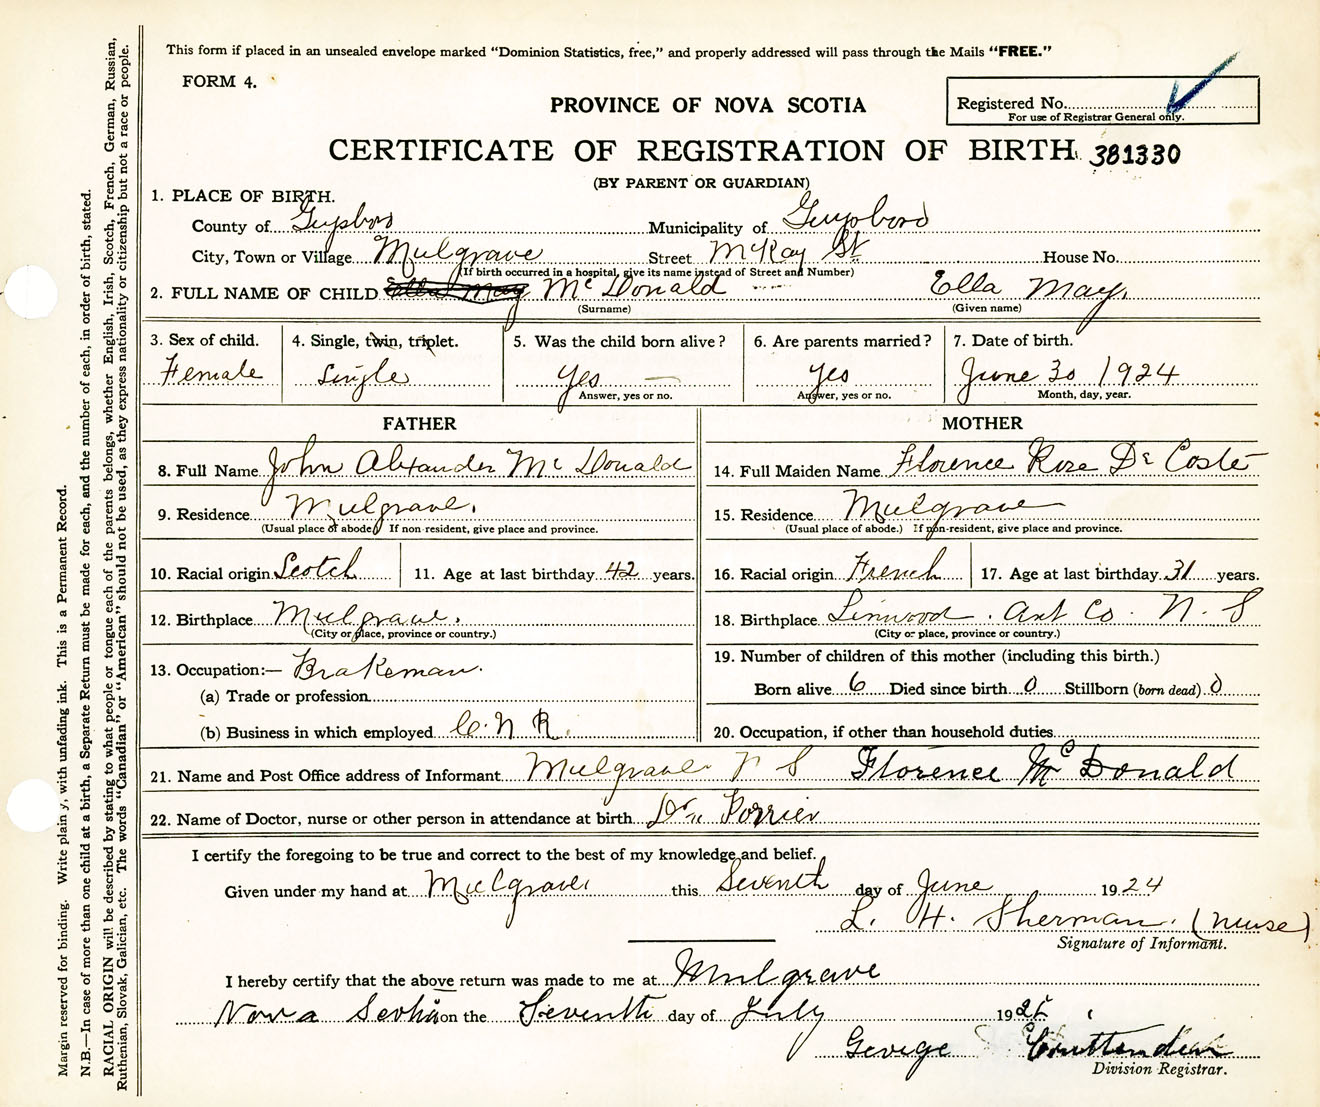 This form if placed in an unsealed envelope marked "Dominion Statistics, free," and properly addressed will pass through the Mails "FREE."
FORM 4.
PROVINCE OF NOVA SCOTIA
Registered No.
For use of Registrar General only.
CERTIFICATE OF REGISTRATION OF BIRTH 381330
(BY PARENT OR GUARDIAN)
1. PLACE OF BIRTH.
County of Guysboro Municipality of Guysboro
City, Town or Village Mulgrave Street McKay St House No.
(If birth occurred in a hospital, give its name instead of Street and Number)
2. FULL NAME OF CHILD Ella May Mc Donald Ella May,
(Surname) (Given name)
3. Sex of child. 4. Single, twin, triplet. 5. Was the child born alive? 6. Are parents married? 7. Date of birth.
Female Single Yes Yes June 30 1924
Answer, yes or no. Answer, yes or no. Month, day, year.
FATHER MOTHER
8. Full Name John Alexander Mc Donald 14. Full Maiden Name Florence Rose De Coste
9. Residence Mulgrave. 15. Residence Mulgrave
(Usual place of abode.) If non-resident, give place and province. (Usual place of abode.) If non-resident, give place and province.
10. Racial origin Scotch 11. Age at last birthday 42 years. 16. Racial origin French 17. Age at last birthday 31 years.
12. Birthplace Mulgrave. 18. Birthplace Linwood. Ant Co. N. S
(City or place, province or country.) (City or place, province or country.)
13. Occupation:— Brakeman. 19. Number of children of this mother (including this birth.)
(a) Trade or profession Born alive 6 Died since birth 0 Stillborn (born dead) 0
(b) Business in which employed C. N R. 20. Occupation, if other than household duties
21. Name and Post Office address of Informant Mulgrave N S Florence Mc Donald
22. Name of Doctor, nurse or other person in attendance at birth Dr. Porrier
I certify the foregoing to be true and correct to the best of my knowledge and belief.
Given under my hand at Mulgrave this Seventh day of June 1924
L. H. Sherman. (nurse)
Signature of Informant.
I hereby certify that the above return was made to me at Mulgrave
Nova Scotia on the Seventh day of July 192
George Cruttenden
Division Registrar.
Margin reserved for binding. Write plainly, with unfading ink. This is a Permanent Record.
N.B.—In case of more than one child at a birth, a Separate Return must be made for each, and the number of each, in order of birth, stated.
RACIAL ORIGIN will be described by stating to what people or tongue each of the parents belongs, whether English, Irish, Scotch, French, German, Russian,
Ruthenian, Slovak, Galician, etc. The words "Canadian" or "American" should not be used, as they express nationality or citizenship but not a race or people.